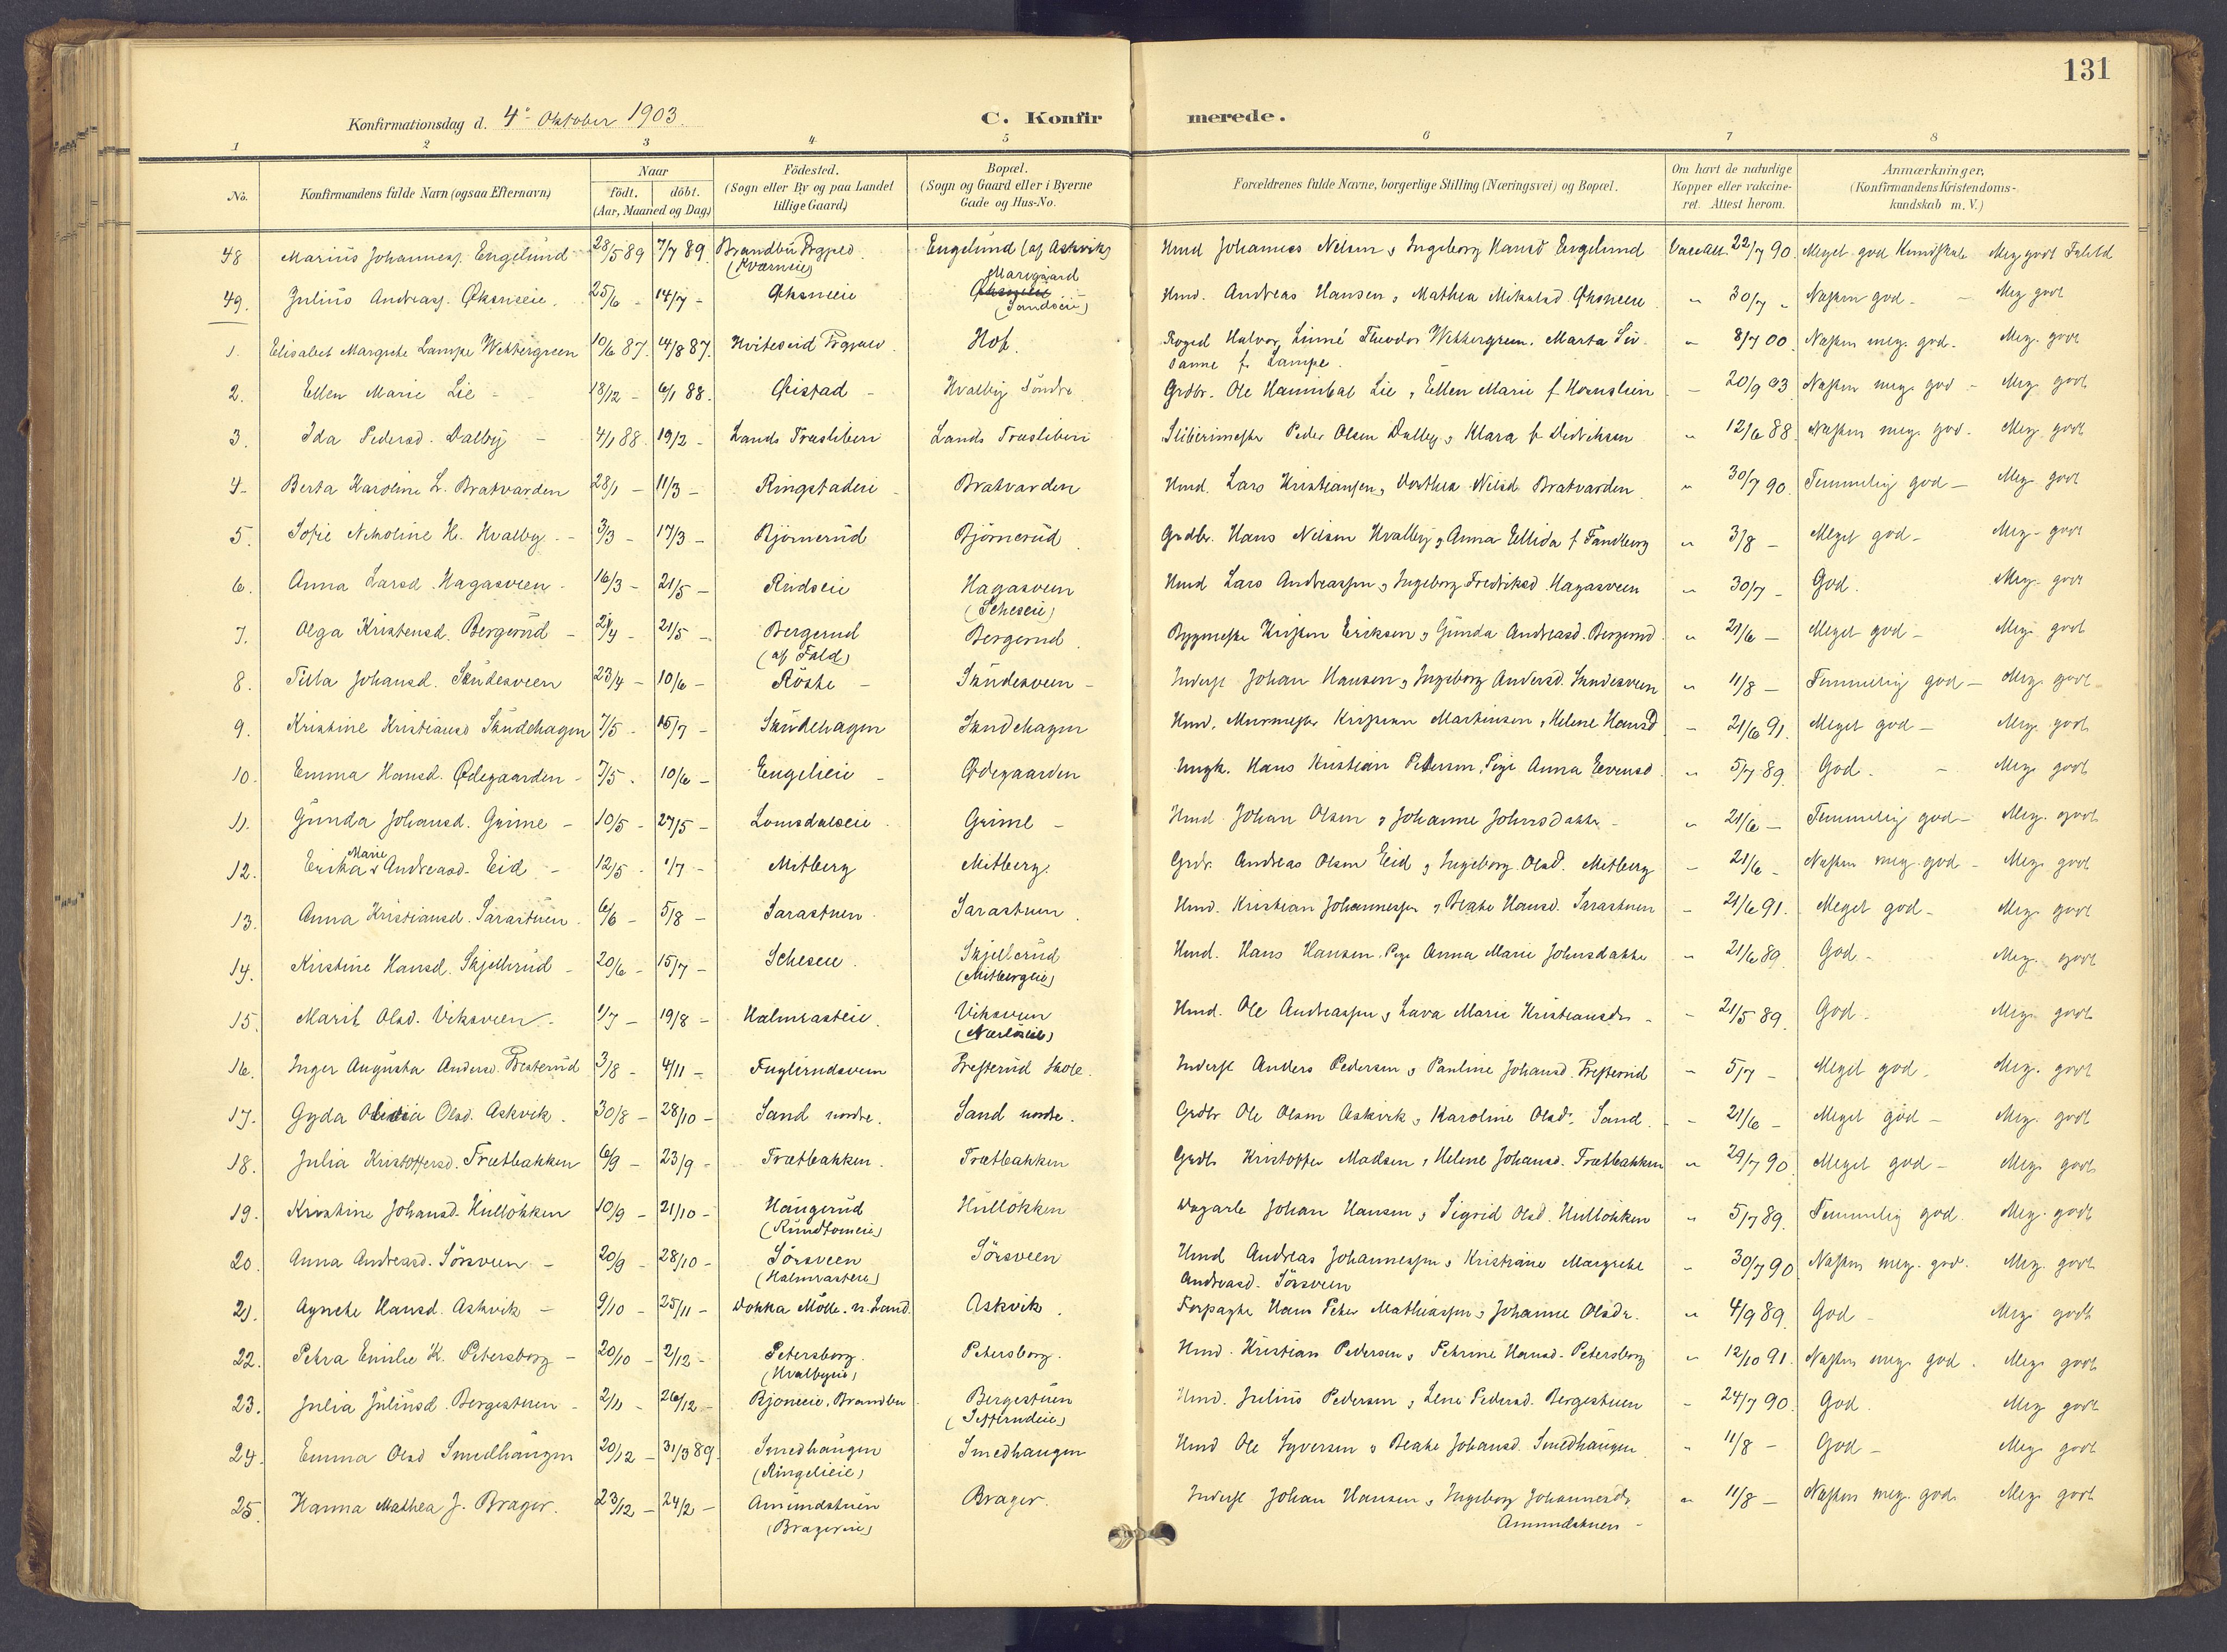 131
Konfirmationsdag d. 4de Oktober 1903.
C. Konfirmerede.
1 2 3 4 5 6 7 8
No. Konfirmandens fulde Navn (ogsaa Efternavn) Naar født. døbt. (Aar, Maaned og Dag) Fødested. (Sogn eller By og paa Landet tillige Gaard) Bopæl. (Sogn og Gaard eller i Byerne Gade og Hus-No. Forældrenes fulde Navne, borgerlige Stilling (Næringsvei) og Bopæl. Om havt de naturlige Kopper eller vakcineret. Attest herom. Anmærkninger, (Konfirmandens Kristendomskundskab m. V.)
48 Marius Johanness. Engelund 28/5 89 7/7 89. Brandbu Prgjeld. (Kværneie) Engelund (af Askvik) Hmd Johannes Nelsen & Ingeborg Hansd Engelund Vaccatt. 22/7 90. Meget god Kundskab Meg godt Forhold
49. Julius Andreass. Øksneeie. 25/6 - 14/7 - Øksneeie Marigaard (Sandseie) Hmd. Andreas Hansen & Mathea Mikalsd. Øksneeie " 30/7 " Næsten god - Meg godt
1. Elisabet Margrete Lampe Wettergreen 10/6 87. 14/8 87. Hviteseid Prgjeld. Hof. Foged Halvor Linné Theodor Wettergreen. Marta Susanne f. Lampe. " 8/7 00. Næsten meg. god. Meg. godt
2. Ellen Marie Lie - 18/12 - 6/1 88. Øistad - Hvalby Søndre Grdbr. Ole Hannibal Lie, Ellen Marie f. Hornslien - 20/9 03 Næsten meg. god - Meg. godt
3. Ida Pedersd. Dalby - 4/1 88. 19/2 - Lands Træsliberi Lands Træsliberi Slibermester Peder Olsen Dalby & Klara f. Didriksen " 12/6 88. Næsten meg. god. Meg. godt
4. Berta Karoline L. Bratvarden 28/1 - 11/3 - Ringstadeie - Bratvarden Hmd. Lars Kristiansen, Dorthea Nilsd. Bratvarden. " 30/7 90. Temmelig god - Meg. godt
5. Sofie Nikoline H. Hvalby. - 3/3 - 17/3 - Bjørnerud Bjørnerud Grdbr. Hans Nelsen Hvalby & Anna Ellida f. Sandberg " 3/8 - Meget god - Meg. godt
6. Anna Larsd. Hagasveen - 16/3 - 21/5 - Rudseie Hagasveen (Scheseie) Hmd Lars Andreassen & Ingeborg Fredriksd. Hagasveen " 30/7 - God. Meg. godt
7. Olga Kristensd. Bergerud - 24/4 - 21/5 - Bergerud (af Fald) Bergerud Bygmester Kristen Eriksen & Gunda Andreasd. Bergerud. " 21/6 - Meget god - Meg. godt
8. Tilla Johansd. Skudesveen 23/4 - 10/6 - Røste - Skudesveen - Inderst Johan Hansen & Ingeborg Andersd. Skudesveen " 11/8 - Temmelig god - Meg. godt
9. Kristine Kristiansd Skudehagen 7/5 - 15/7 - Skudehagen Skudehagen Hmd. Murmester Kristian Martinsen, Helene Hansd. - 21/6 91. Meget god - Meg. godt
10. Emma Hansd. Ødegaarden - 7/5 - 10/6 - Engelieie - Ødegaarden Ungk. Hans Kristian Pedersen, Pige Anna Evensd. " 5/7 89. God. - Meg. godt
11. Gunda Johansd. Grime - 10/5 - 27/5 - Lomsdalseie Grime - Hmd. Johan Olsen & Johanne Johnsdatter - " 21/6 - Temmelig god - Meg. godt
12. Erika Marie Andreasd. Eid - 12/5 - 1/7 - Mitberg Mitberg. Grdr. Andreas Olsen Eid & Ingeborg Olsd. Mitberg - 21/6 - Næsten meg. god - Meg. godt
13. Anna Kristiansd. Sarastuen - 6/6 - 5/8 - Sarastuen. Sarastuen. Hmd. Kristian Johannessen & Beate Hansd. Sarastuen - 21/6 91. Meget god - Meg. godt
14. Kristine Hansd. Skjellerud - 20/6 - 15/7 - Scheseie. Skjellerud (Mitbergeie) Hmd. Hans Hansen. Pige Anna Marie Johnsdatter " 21/6 89. God - Meg. godt
15. Marit Olsd. Viksveen - 1/7 - 19/8 - Halmrasteie. Viksveen Hmd. Ole Andreassen & Lava Marie Kristiansdr - - 21/5 89. God - Meg. godt
16. Inger Augusta Andersd. Presterud 3/8 - 4/11 - Fuglerudsveen Presterud Skole. Inderst Anders Pedersen & Pauline Johansd. Presterud - 5/7 - Meget god. Meg. godt
17. Gyda Olsd. Askvik. 30/8 - 28/10 - Sand nordre. Sand nordre. Grdbr Ole Olsen Askvik & Karoline Olsdr. Sand. - 21/6 - Meget god - Meg. godt
18. Julia Kristoffersd. Trætbakken 6/9 - 23/9 - Trætbakken. Trætbakken Grdbr Kristoffer Madsen, Helene Johansd. Trætbakken " 29/7 90. Meget god - Meg. godt
19. Kristine Johansd. Hulløkken 10/9 - 21/10 - Haugerud (Rundtomeie) Hulløkken Dagarb. Johan Hansen & Sigrid Olsd. Hulløkken " 5/7 89. Temmelig god. Meg. godt
20. Anna Andreasd. Sørsveen - 20/9 - 28/10 - Sørsveen (Halmrasteie) Sørsveen Hmd Andreas Johannessen & Kristiane Margrete Andreasd. Sørsveen - 30/7 90 Næsten meg. god. Meg. godt
21. Agnete Hansd. Askvik - 9/10 - 25/11 - Dokka Mølle. n. Land. Askvik. Forpagter Hans Peter Mathiassen & Johanne Olsdr. " 4/9 89. God - Meg. godt
22. Petra Emilie K. Petersborg - 20/10 - 2/12 - Petersborg. (Hvalbyeie) Petersborg. Hmd. Kristian Pedersen & Petrine Hansd. Petersborg " 12/10 91. Næsten meg. god. Meg. godt
23. Julia Juliusd. Bergestuen - 2/11 - 26/12 - Bjoneeie, Brandbu Bergestuen Hmd. Julius Pedersen & Lene Pedersd. Bergestuen - 24/7 90. God. Meg godt
24. Emma Olsd Smedhaugen 20/12 - 31/3 89. Smedhaugen (Ringelieie) Smedhaugen Hmd Ole Syversen & Beate Johansd. Smedhaugen. " 11/8 - God - Meg. godt
25. Hanna Mathea J. Brager. 23/12 - 24/2 - Amundstuen (Bragereie) Brager. Inderst Johan Hansen & Ingeborg Johannesdr. Amundstuen - " 11/8 - Næsten meg. god. Meg. godt